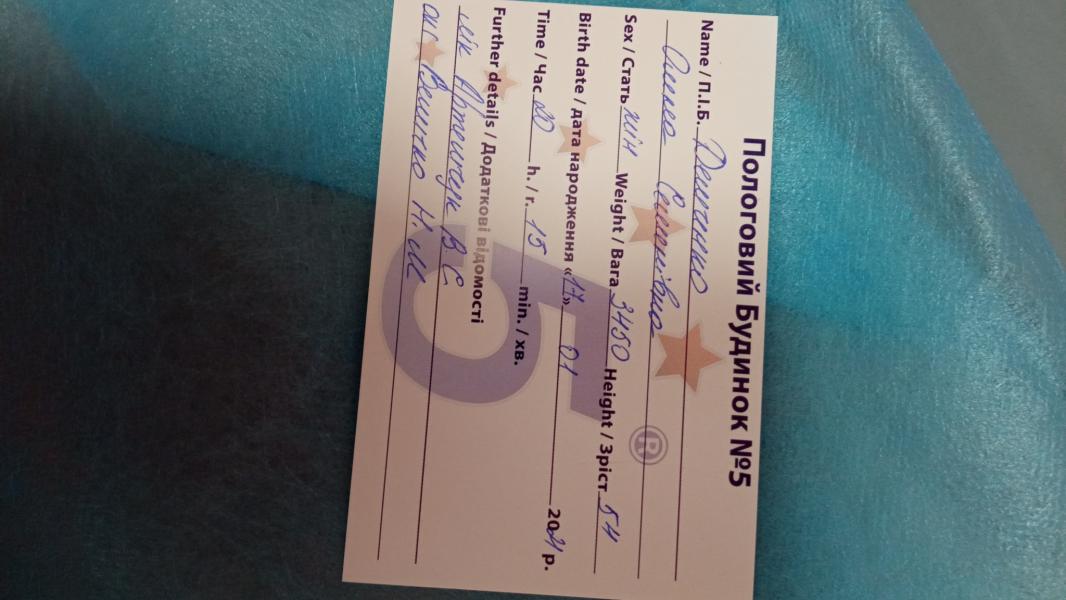 Пологовий Будинок №5
Name / П.І.Б. Демченко
Семенівна
Sex / Стать жін Weight / Вага 3450 Height / Зріст 54
Birth date / дата народження «17» 01 2021 р.
Time / Час 20 h. / г. 15 min. / хв.
Further details / Додаткові відомості
лік В С
акг Н. М
5
®